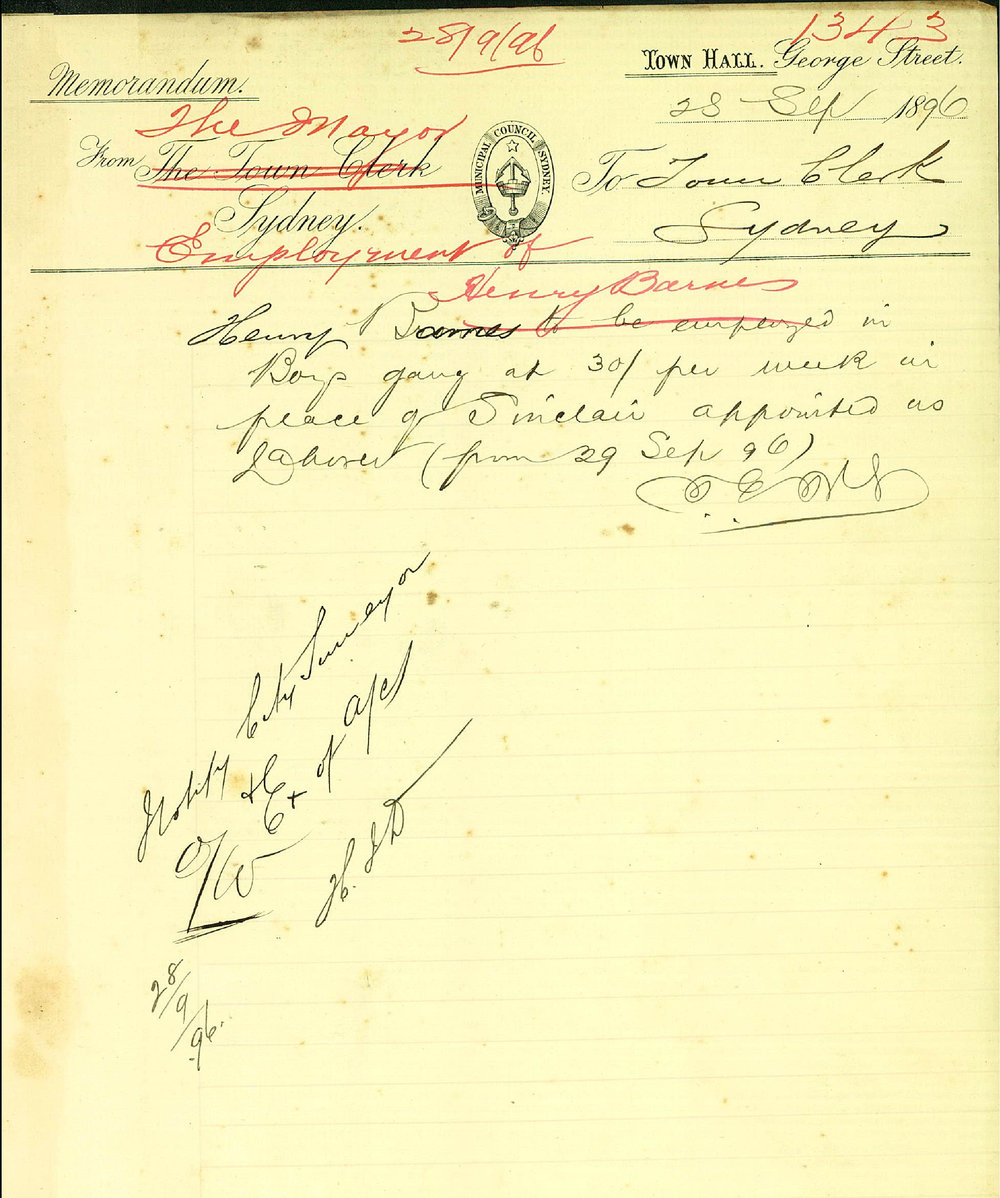 28/9/96
1343
Memorandum.
TOWN HALL. George Street.
28 Sep 1896
The Mayor
From The Town Clerk
MUNICIPAL COUNCIL SYDNEY.
To Town Clerk
Sydney.
Sydney
Employment of
Henry Barnes
Henry Barnes to be employed in
Boys gang at 30/ per week in
place of Sinclair appointed as
Laborer (from 29 Sep 96)
Notify City Surveyor
& Ex of a/cs
H. J D
28/9/96.